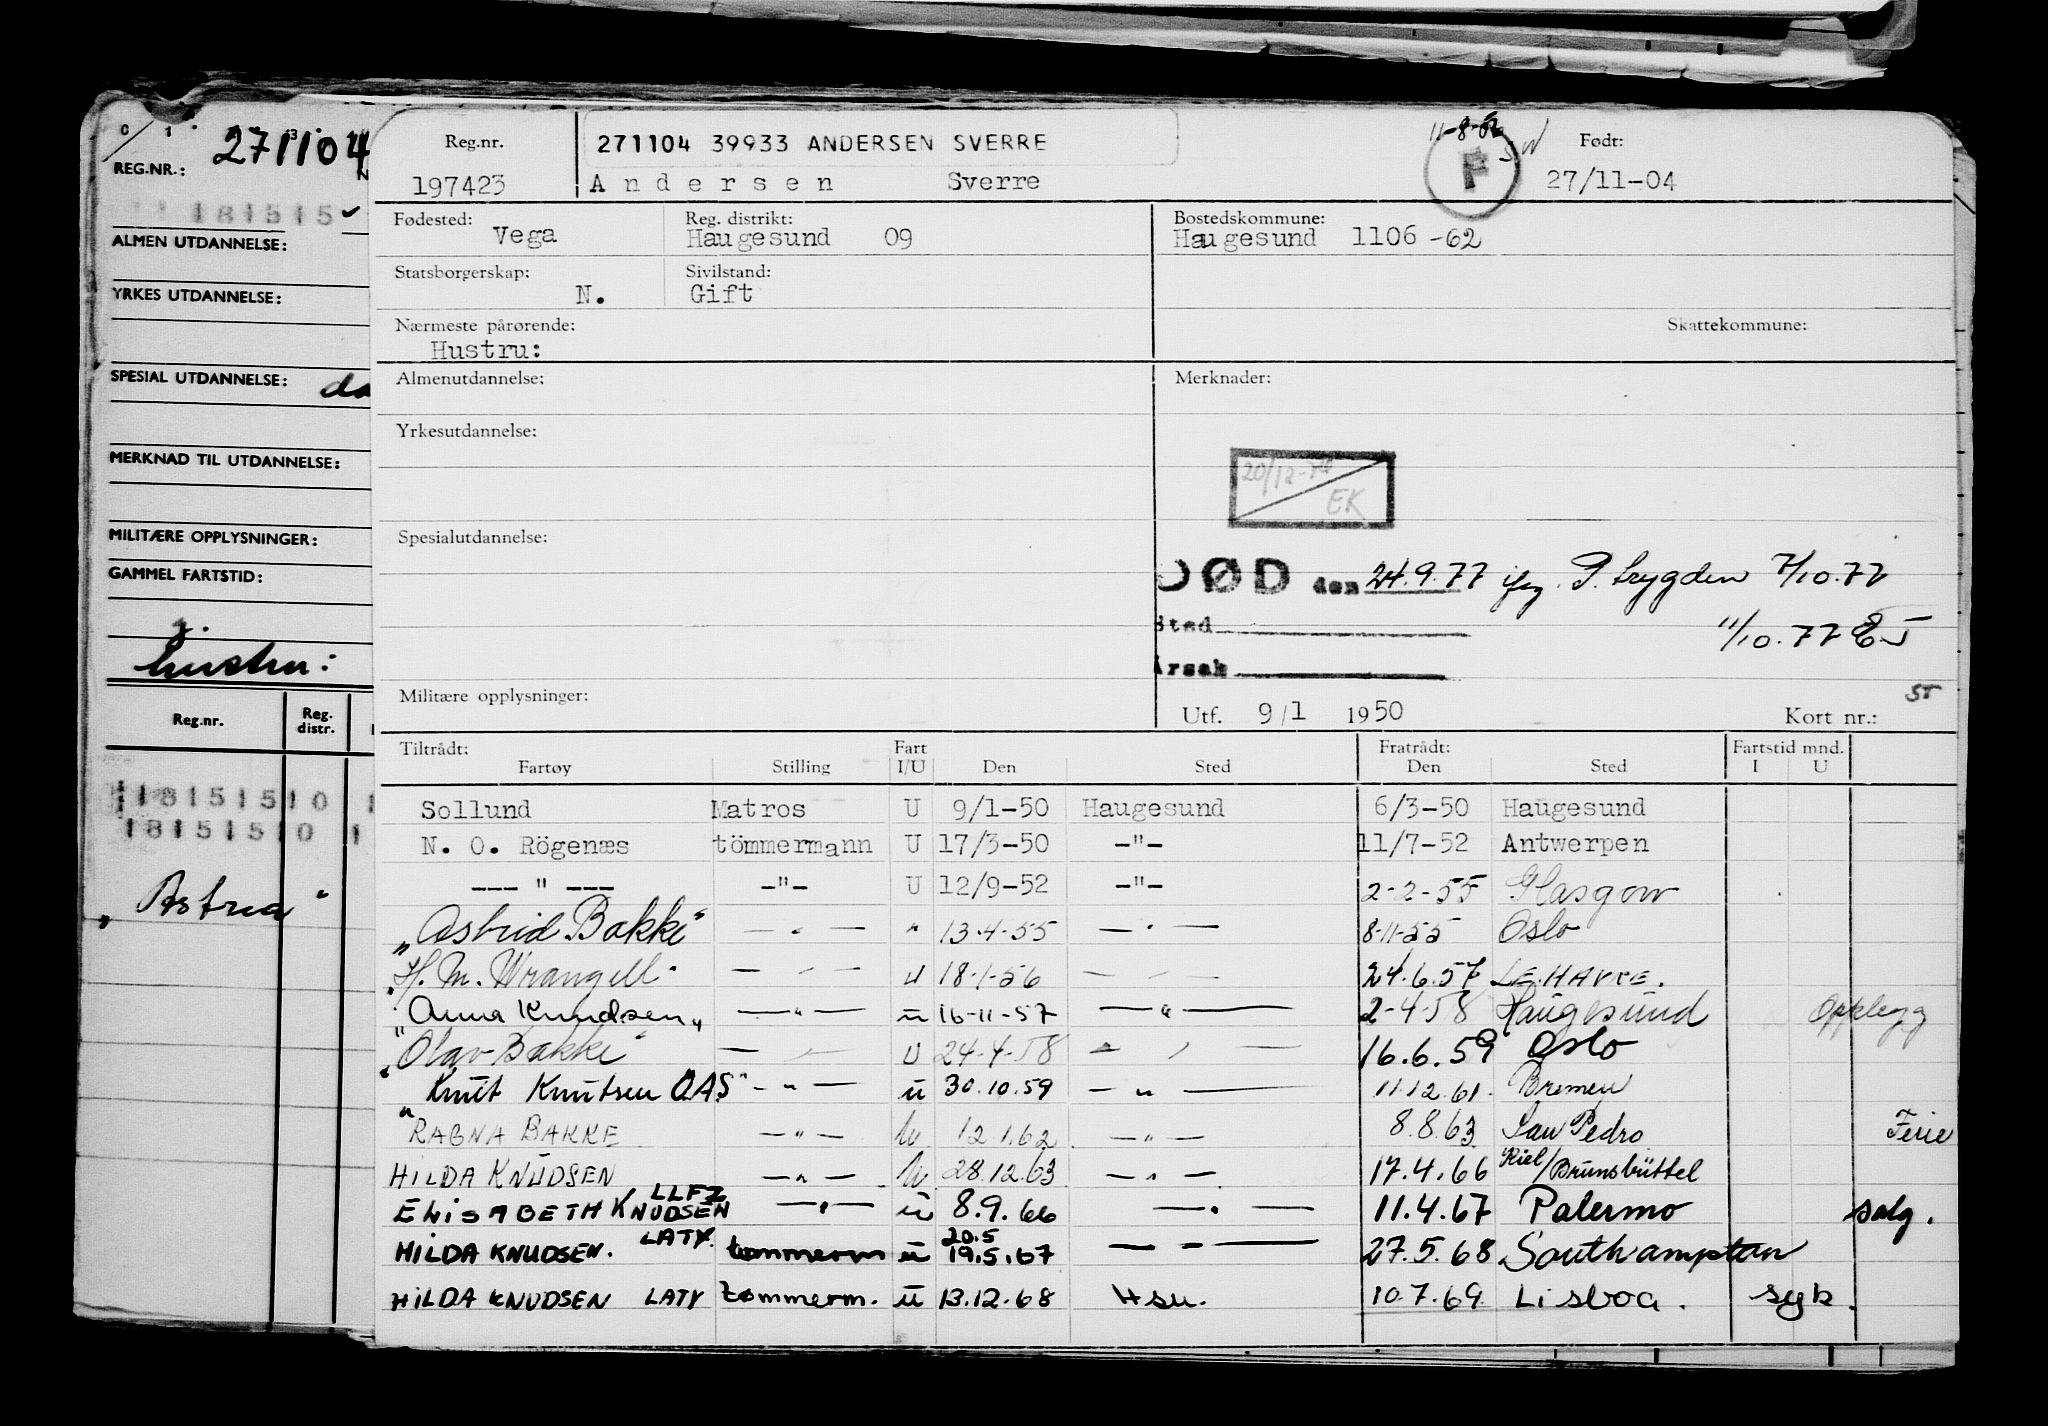 REG.NR.: 271104
181515
ALMEN UTDANNELSE:
YRKES UTDANNELSE:
SPESIAL UTDANNELSE:
MERKNAD TIL UTDANNELSE:
MILITÆRE OPPLYSNINGER:
GAMMEL FARTSTID:
g.
hustru:
Reg.nr. Reg. distr.
181515 0 1
181515 0 1
" Astrea "
Reg.nr. 271104 39933 ANDERSEN SVERRE 11-8-66 Født:
197423 Andersen Sverre F 27/11-04
Fødested: Reg. distrikt: Bostedskommune:
Vega Haugesund 09 Haugesund 1106 -62
Statsborgerskap: Sivilstand:
N. Gift
Nærmeste pårørende: Skattekommune:
Hustru:
Almenutdannelse: Merknader:
Yrkesutdannelse:
20/12-70
EK
Spesialutdannelse:
DØD den 24.9.77 ifg. P. trygden 7/10.77
Sted 11/10.77 EJ
Årsak
Militære opplysninger:
Utf. 9/1 1950 Kort nr.:
Tiltrådt: Fart Fratrådt: Fartstid mnd.
Fartøy Stilling I/U Den Sted Den Sted I U
Sollund Matros U 9/1-50 Haugesund 6/3-50 Haugesund
N. O. Rögenæs tömmermann U 17/3-50 -"- 11/7-52 Antwerpen
--- " --- -"- U 12/9-52 -"- 2-2-55 Glasgow
"Astrid Bakke" - " - " 13-4-55 - " - 8-11-55 Oslo
"H. M. Wrangell" - " - u 18-1-56 - " - 24.6.57 LE HAVRE.
"Anna Knudsen" - " - u 16-11-57 - " - 2-4-58 Haugesund Opplegg
"Olav Bakke" - " - U 24-4-58 - " - 16.6.59 Oslo
"Knut Knutsen OAS" - " - u 30.10.59 - " - 11.12.61. Bremen
"RAGNA BAKKE - " - u 12.1.62. - " - 8.8.63 San Pedro Ferie
HILDA KNUDSEN - " - u 28.12.63 - " - 17.4.66 Kiel/Brunsbüttel
ELISABETH KNUDSEN LLFZ - " - u 8.9.66 - " - 11.4.67 Palermo salg.
HILDA KNUDSEN. LATY. tømmerm u 20.5 19.5.67 - " - 27.5.68 Southampton
HILDA KNUDSEN LATY Tømmerm. u 13.12.68 Hsu. 10.7.69. Lisboa. syk.